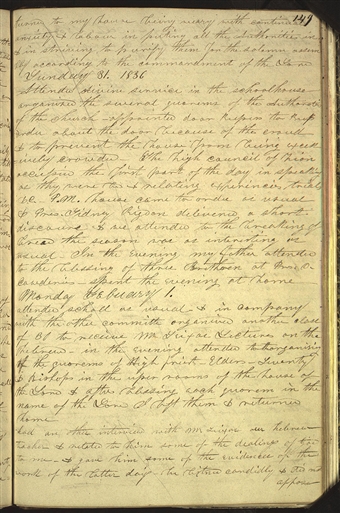 149
turned to my house being weary with continual
anxiety & labour in puting all the Authorities in
& in striving to purify them for the solemn assem
bly according to the commandment of the Lord
Sunday 31. 1836
Attended divine service in the schoolhouse
organized the several quorums of the Authoraties
of the church - appointed door keepers to keep
order about the door because of the crowd
& to prevent the house from being excee
sively crowded. The high council of Zion
occupied the first part of the day in speaking
as they were led & relating experiences, trials
&c. P.M. house came to order as usual
& Pres. Sidney Rigdon delivered a short
discours & we attended to the breaking of
bread the season was as interesting as
usual. In the evening my father attended
to the blessing of three Brotheren at Pres. O.
Cowderies - spent the evening at home
Monday Febuary 1.
attended school as usual & in company
with the other committe organized another class
of 30 to receive Mr Seixas Lectures on the
hebrew - in the evening attended to organizing
of the quorums of High priest - Elders - Seventy
& Bishops in the uper rooms of the house of
the Lord & after blessing each quorem in the
name of the Lord I left them & returned
home
had an other interview with Mr Seixas our hebrew
teacher & related to him some of the dealings of God
to me - & gave him some of the evidences of the
work of the latter days - he listned candidly & did not
appose